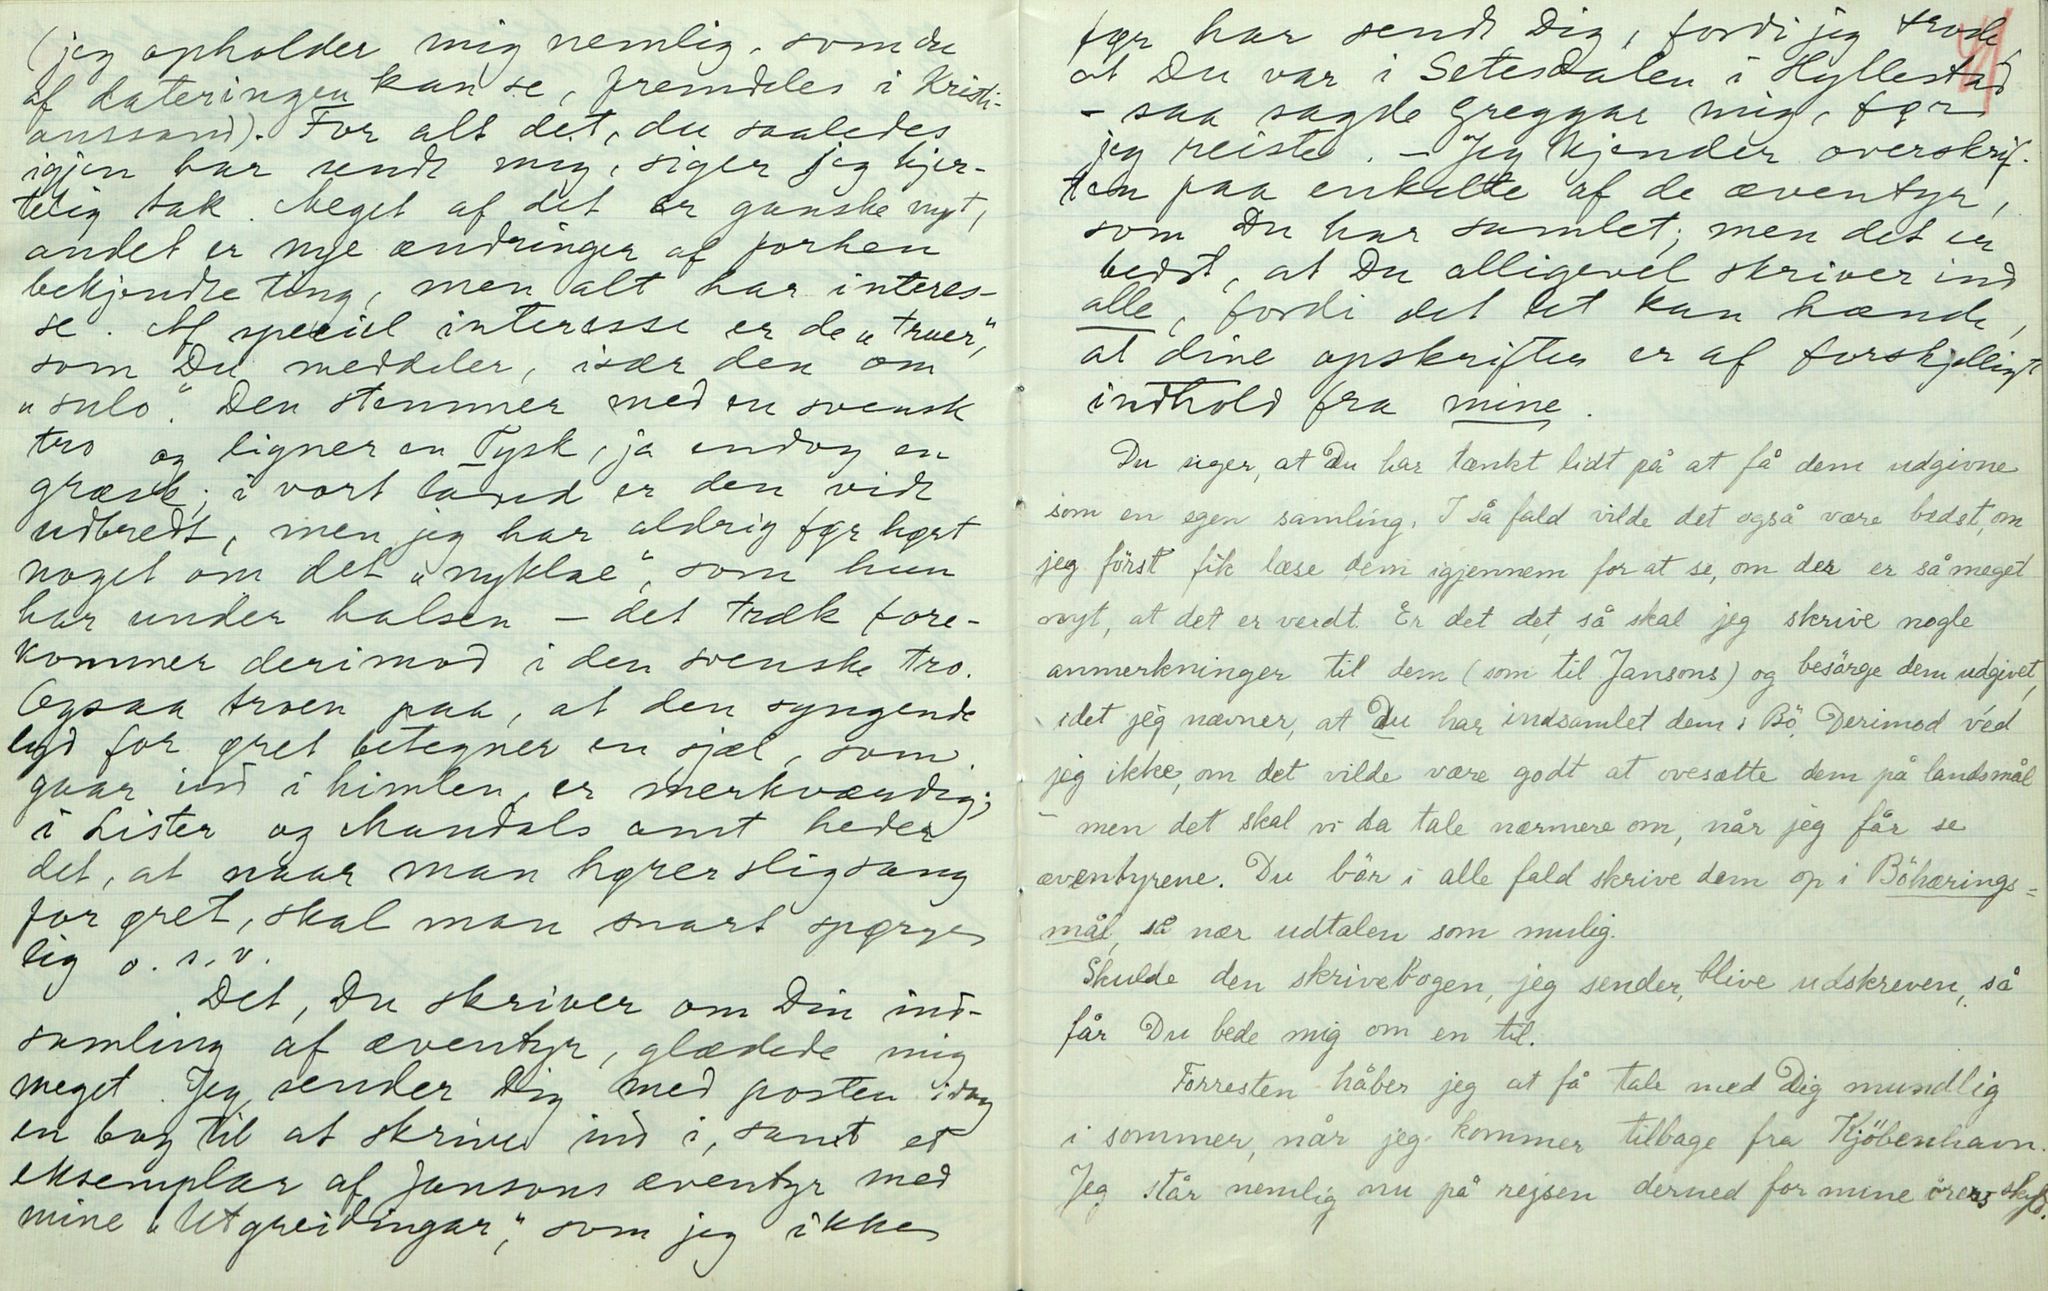 (jeg opholder mig nemlig, som du
af dateringen kan se, fremdeles i Kristi-
anssand). For alt det, du saaledes
igjen har sendt mig, siger jeg hjer-
telig tak. Meget af det er ganske nyt,
andet er nye ændringer af forhen
bekjendte ting, men alt har interes-
se. Af speciel interesse er de "truer",
som Du meddeler, især den om
"sulo". Den stemmer med en svensk
tro og ligner en Tysk, ja endog en
græsk; i vort land er den vidt
udbredt, men jeg har aldrig før hørt
noget om det "nyklae", som hun
har under halsen – det træk fore-
kommer derimod i den svenske tro.
Ogsaa troen paa, at den syngende
lyd for øret betegner en sjæl, som
gaar ind i himlen, er merkværdig;
i Lister og Mandals amt heder
det, at naar man hører slig sang
for øret, skal man snart spørge
lig o. s. v.
Det, Du skriver om Din ind-
samling af æventyr, glædede mig
meget. Jeg sender Dig med posten idag
en bog til at skrive ind i, samt et
eksemplar af Jansons æventyr med
mine "Utgreidingar", som jeg ikke
før har sendt Dig, fordi jeg trode
at Du var i Setesdalen i Hyllestad
– saa sagde Greggar mig, før
jeg reiste. – Jeg kjender overskrif-
ten paa enkelte af de æventyr,
som Du har samlet; men det er
bedst, at Du alligevel skriver ind
alle, fordi det let kan hænde,
at dine opskrifter er af forskjelligt
indhold fra mine.
Du siger, at Du har tænkt lidt på at få dem udgivne
som en egen samling. I så fald vilde det også være bedst, om
jeg först fik læse dem igjennem for at se, om der er så meget
nyt, at det er verdt. Er det det, så skal jeg skrive nogle
anmerkninger til dem (som til Jansons) og besörge dem udgivet,
idet jeg nævner, at Du har indsamlet dem i Bö. Derimod ved
jeg ikke, om det vilde være godt at ovesætte dem på landsmål
– men det skal vi da tale nærmere om, når jeg får se
æventyrene. Du bör i alle fald skrive dem op i Böhærings=
mål, så nær udtalen som mulig.
Skulde den skrivebogen, jeg sender, blive udskreven, så
får Du bede mig om en til.
Forresten håber jeg at få tale med Dig mundlig
i sommer, når jeg kommer tilbage fra Kjöbenhavn.
Jeg står nemlig nu på rejsen derned for mine örers skyld.